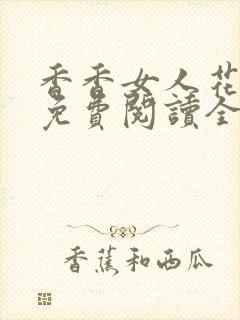 香香女人花
免費閱讀全
香蕉和西瓜